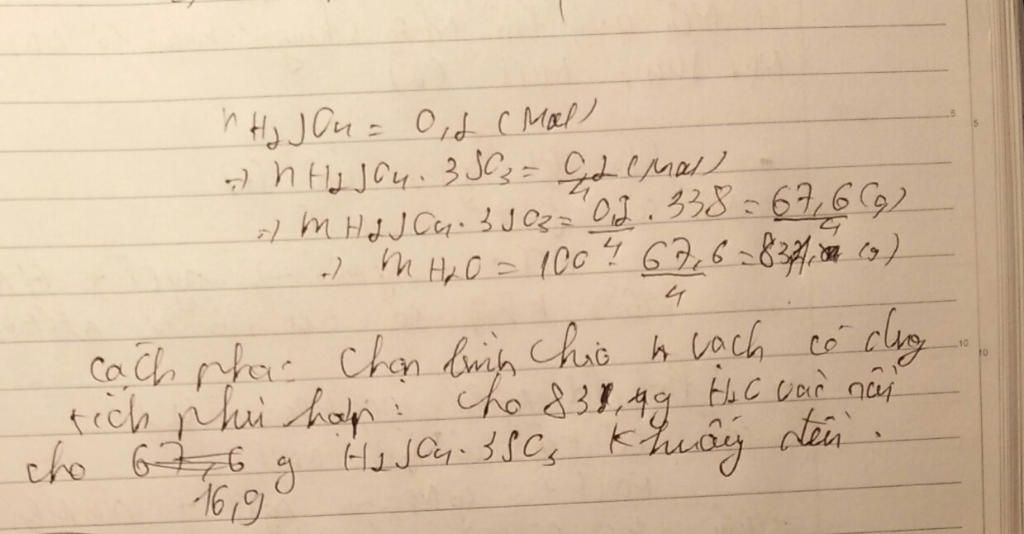 nH₂SO₄ = 0,2 (Mol)
=> nH₂SO₄.3SO₃ = 0,2/4 (Mol)
=> mH₂SO₄.3SO₃ = 0,2/4 . 338 = 67,6/4 (g)
=> mH₂O = 100 - 67,6/4 = 83,1 (g)
Cách pha: Chọn bình chia vạch có dung
tích phù hợp: Cho 83,1g H₂O vào rồi
cho 67,6 g H₂SO₄.3SO₃ khuấy đều.
16,9